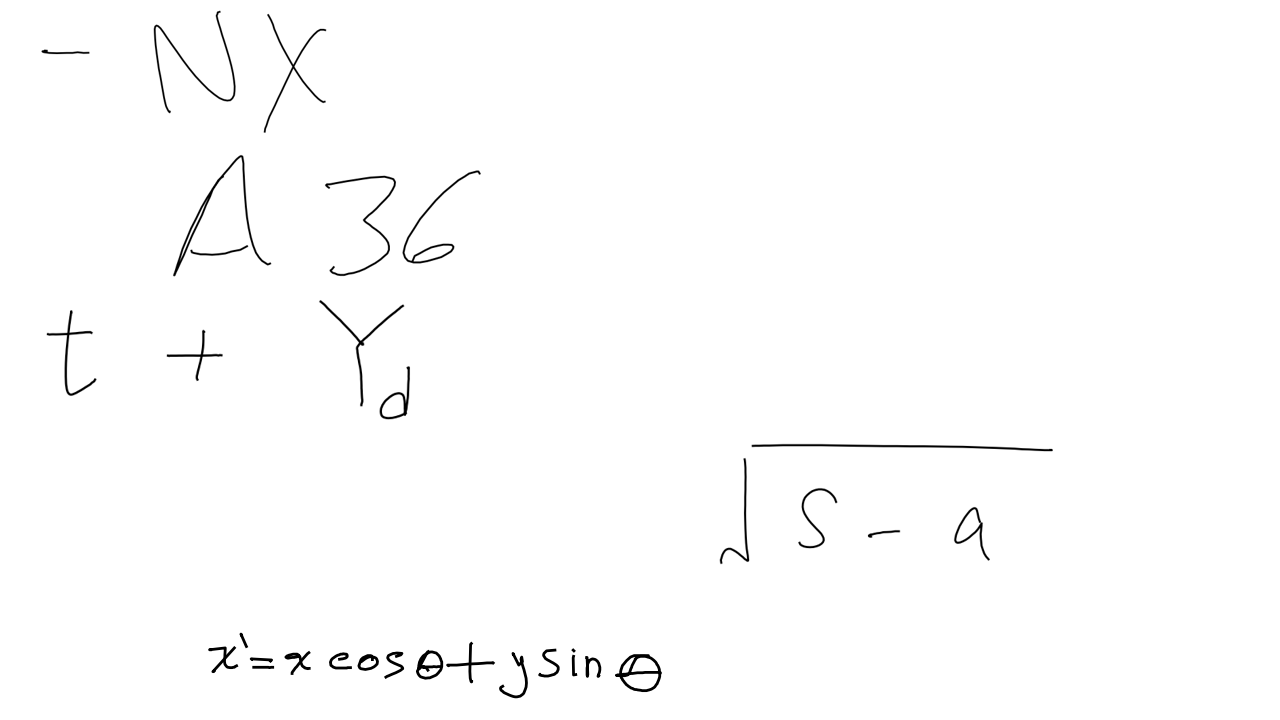 - NX
A 36
t + Y_d
√(s - a)
x' = x cos θ + y sin θ